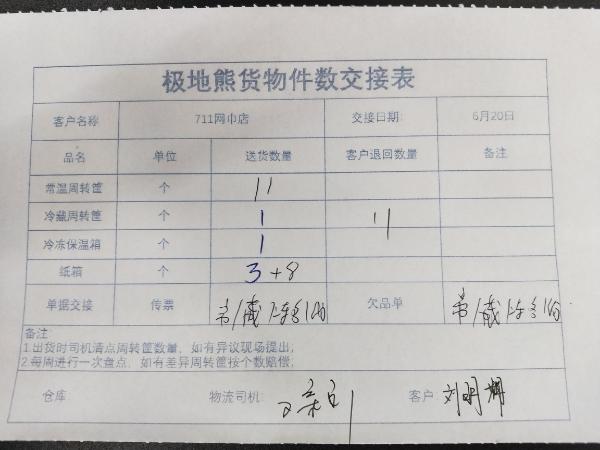 极地熊货物件数交接表
客户名称 711网巾店 交接日期: 6月20日
品名 单位 送货数量 客户退回数量 备注
常温周转筐 个 11
冷藏周转筐 个 1 11
冷冻保温箱 个 1
纸箱 个 3+8
单据交接 传票 常/藏/冻各1份 欠品单 常/藏/冻各1份
备注:
1.出货时司机清点周转筐数量，如有异议现场提出;
2.每周进行一次盘点，如有差异周转筐按个数赔偿;
仓库 物流司机: 客户: 刘明辉